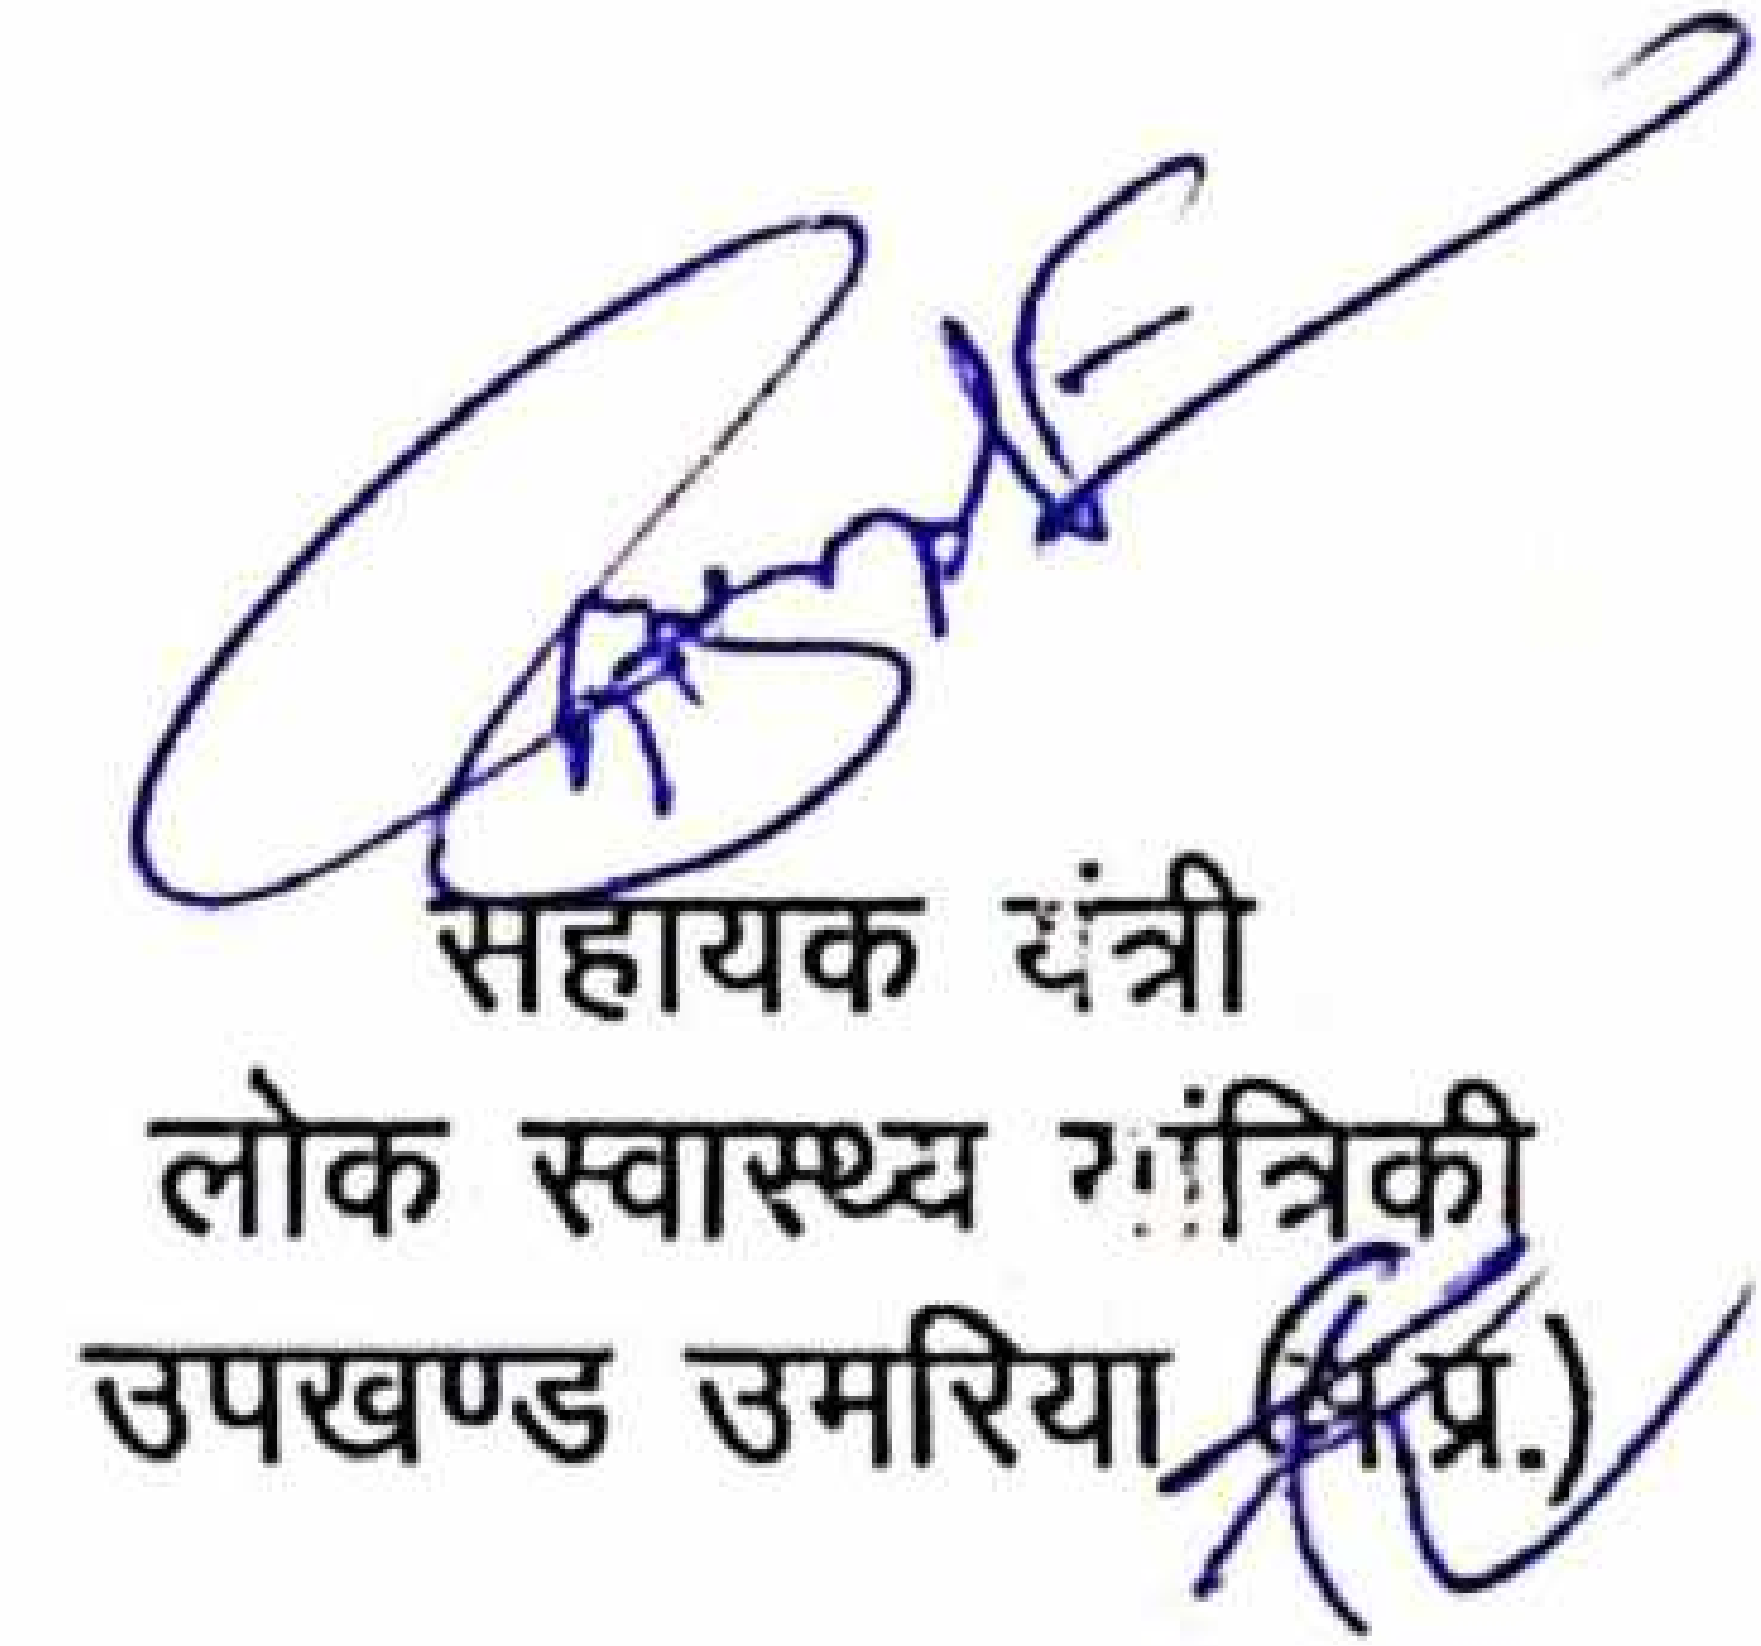 सहायक यंत्री
लोक स्वास्थ्य यांत्रिकी
उपखण्ड उमरिया (म.प्र.)